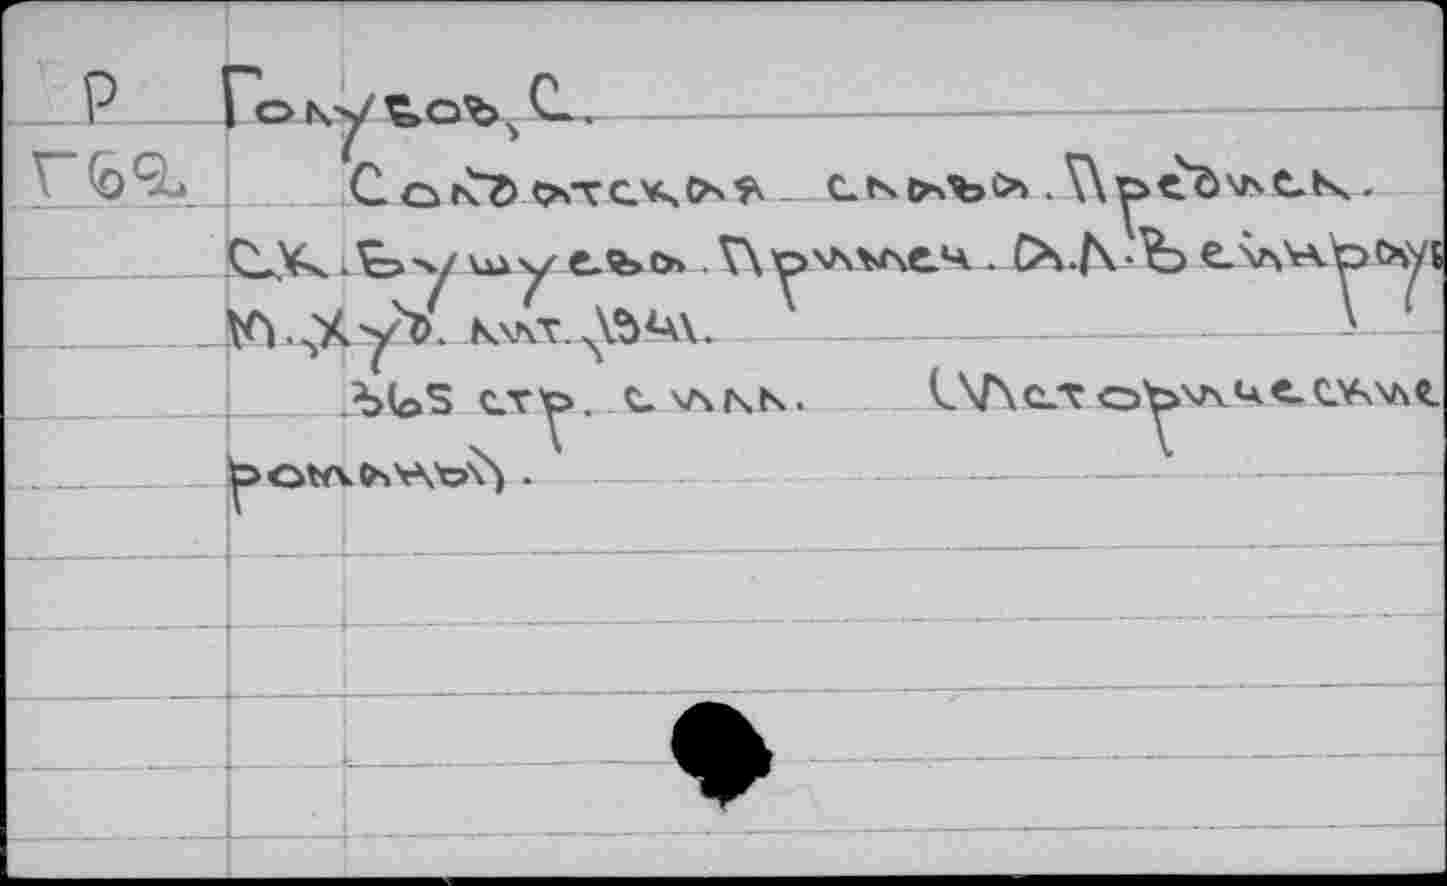 Р Голубов, С.
Г62 Солдатская слава. Предисл.
С.К. Бушуева. Примеч. А.Л. Вейнрауб
М., Худ. лит. 1941.
365 стр. с илл. (Исторические
романы).